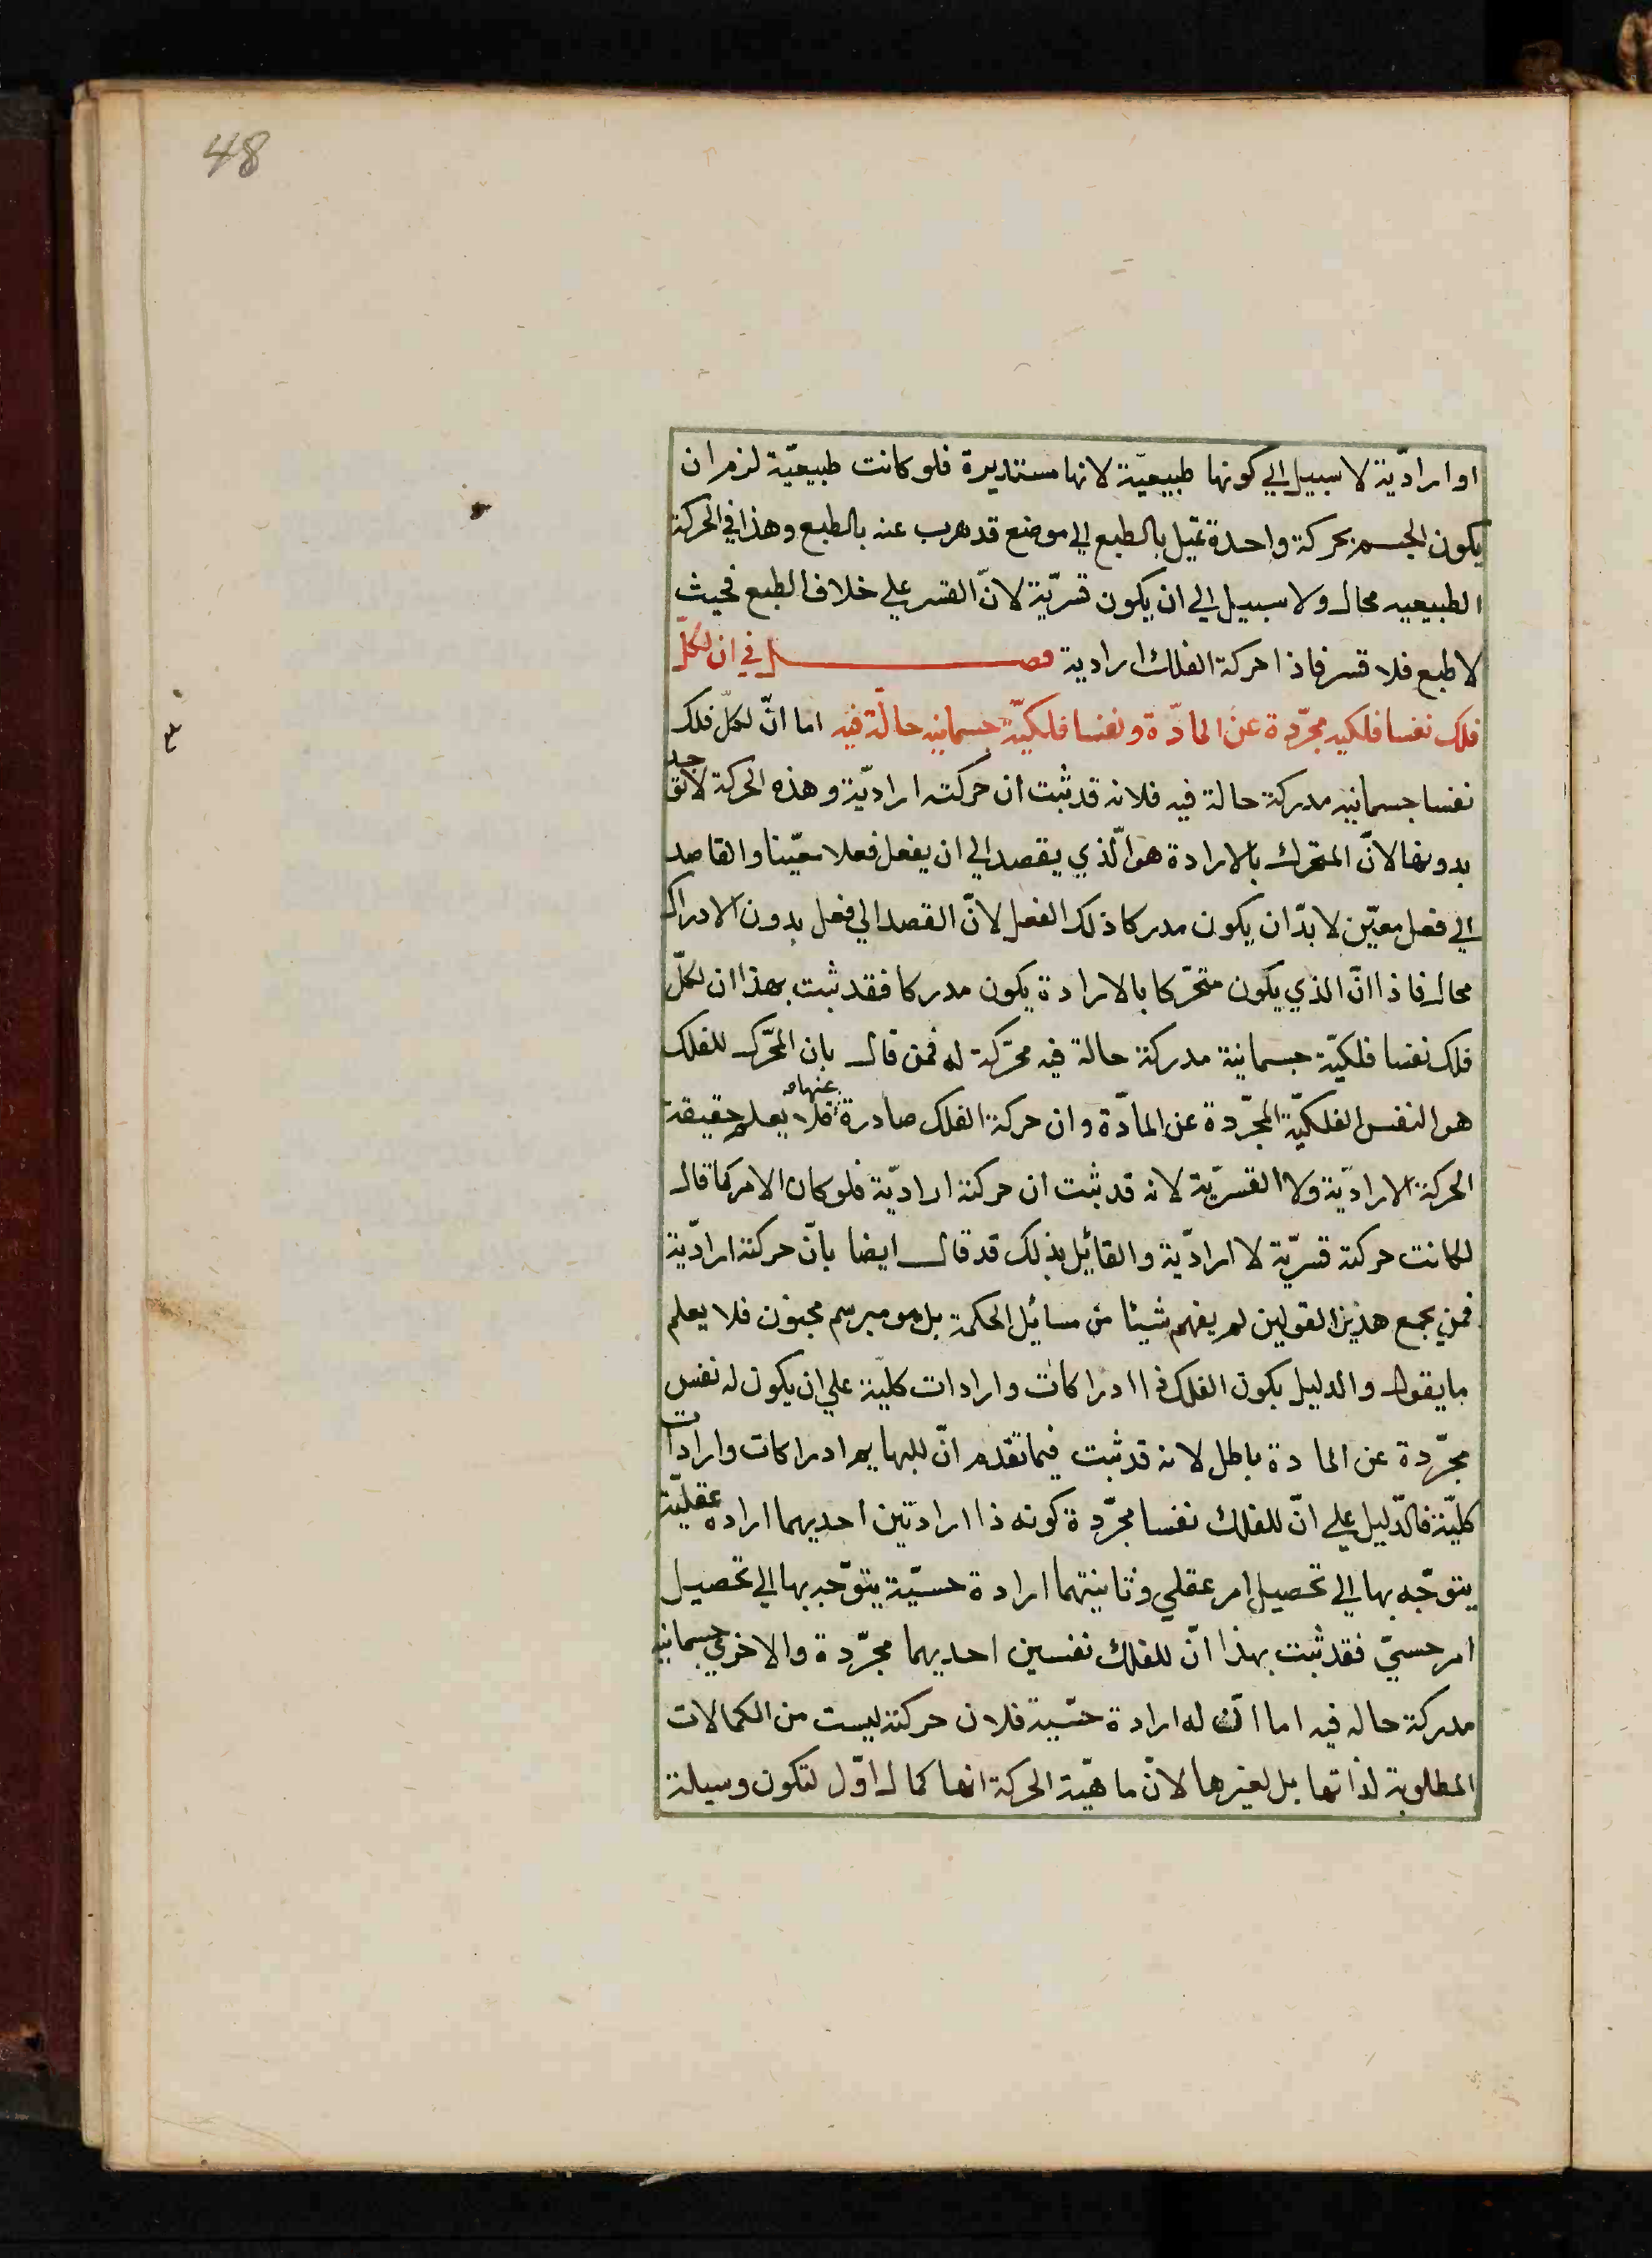 48
او اراديّة لا سبيل الي كونها طبيعيّة لانها مستديرة فلو كانت طبيعيّة لزم ان
يكون الجسم بحركة واحدة تميل بالطبع الي موضع قد هرب عنه بالطبع وهذا في الحركة
الطبيعيه محال ولا سبيل الي ان يكون قسريّة لانّ القسر علي خلاف الطبع فحيث
لا طبع فلا قسر فاذا حركة الفلك ارادية فصل في ان لكلّ
فلك نفسا فلكيه مجرّدة عن المادّة ونفسا فلكيّة جسمانيه حالّة فيه اما انّ لكلّ فلك
نفسا جسمانيه مدركة حالة فيه فلانه قد ثبت ان حركته اراديّة وهذه الحركة لا توجد
بدونها لانّ المتحرك بالارادة هو الّذي يقصد الي ان يفعل فعلا معيّنا والقاصد
الي فعل معيّن لا بدّ ان يكون مدركا ذلك الفعل لانّ القصد الي فعل بدون الادراك
محال فاذا انّ الذي يكون متحرّكا بالارادة يكون مدركا فقد ثبت بهذا ان لكلّ
فلك نفسا فلكيّة جسمانية مدركة حالة فيه محرّكة له فمن قال بان المحرّك للفلك
هو النفس الفلكيّة المجرّدة عن المادّة وان حركة الفلك صادرة عنها فلا يعلم حقيقة
الحركة الاراديّة ولا القسريّة لانه قد ثبت ان حركته اراديّة فلو كان الامر كما قال
لكانت حركته قسريّة لا اراديّة والقائل بذلك قد قال ايضا بانّ حركته اراديّة
فمن يجمع هذين القولين لم يفهم شيئا من مسائل الحكمة بل هو مبرسم مجنون فلا يعلم
ما يقول والدليل بكون الفلك ذا ادراكات وارادات كليّة علي ان يكون له نفس
مجرّدة عن المادة باطل لانه قد ثبت فيما تقدم انّ للبهايم ادراكات وارادات
كليّة فالدّليل علي انّ للفلك نفسا مجرّدة كونه ذا ارادتين احديهما ارادة عقليّة
يتوجّه بها الي تحصيل امر عقلي وثانيتهما ارادة حسيّة يتوجّه بها الي تحصيل
امر حسيّ فقد ثبت بهذا انّ للفلك نفسين احديهما مجرّدة والاخري جسمانيه
مدركة حاله فيه اما انّ له ارادة حسّية فلان حركته ليست من الكمالات
المطلوبة لذاتها بل لغيرها لانّ ماهيّة الحركة انها كمال اوّل لتكون وسيلة